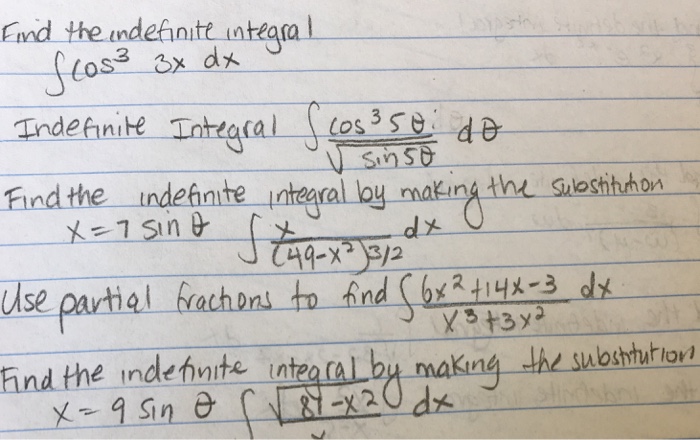 Find the indefinite integral
∫cos³ 3x dx
Indefinite Integral ∫ cos³5θ / √sin5θ dθ
Find the indefinite integral by making the substitution
x=7 sin θ ∫ x / (49-x²)3/2 dx
Use partial fractions to find ∫ 6x²+14x-3 / x³+3x² dx
Find the indefinite integral by making the substitution
x=9 sin θ ∫ √81-x² dx